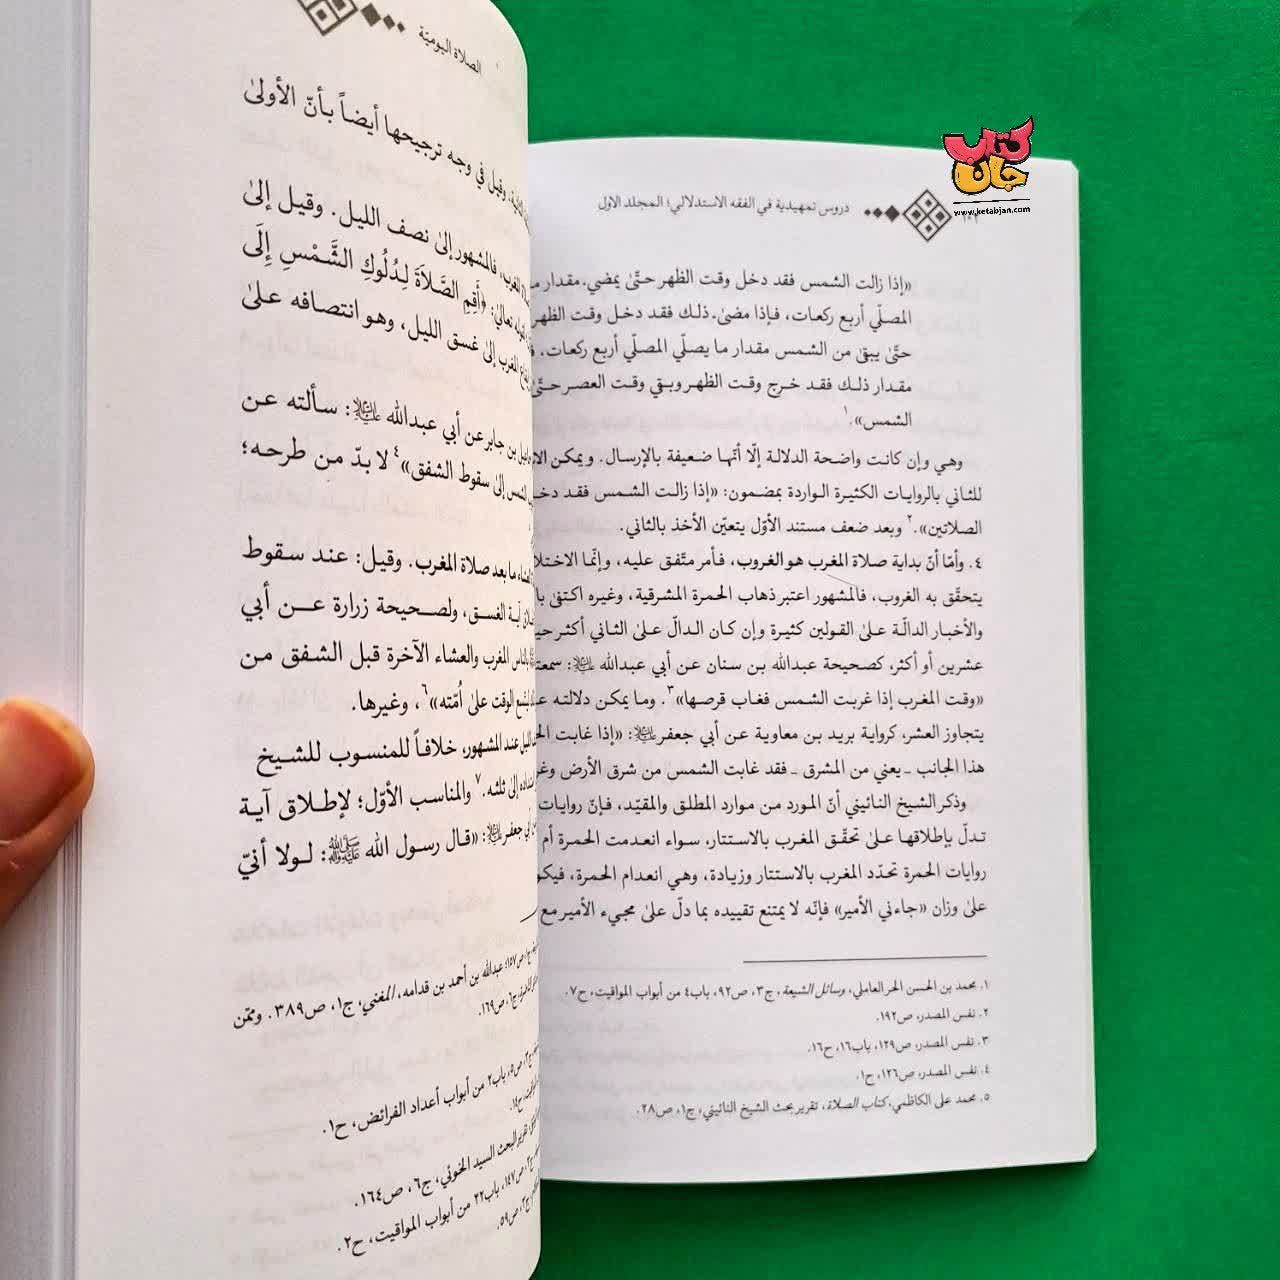 دروس تمهيدية في الفقه الاستدلالي؛ المجلد الاول
كتاب
جان
www.ketabjan.com
«إذا زالت الشمس فقد دخل وقت الظهر حتّىٰ يمضي. مقدار
المصلّي أربع ركعات، فإذا مضىٰ. ذلك فقد دخل وقت الظهر
حتّىٰ يبقىٰ من الشمس مقدار ما يصلّي المصلّي أربع ركعات،
مقدار ذلك فقد خرج وقت الظهر وبقي وقت العصر حتّىٰ
الشمس».١
وهي وإن كانت واضحة الدلالة إلّا أنّها ضعيفة بالإرسال. ويمكن
للثاني بالروايات الكثيرة الواردة بمضمون: «إذا زالت الشمس فقد
الصلاتين».٢ وبعد ضعف مستند الأوّل يتعيّن الأخذ بالثاني.
٤. وأمّا أنّ بداية صلاة المغرب هو الغروب، فأمر متّفق عليه، وإنّما
يتحقّق به الغروب، فالمشهور اعتبر ذهاب الحمرة المشرقية، وغيره اكتفىٰ
والأخبار الدالّة علىٰ القولين كثيرة وإن كان الدالّ علىٰ الثاني أكثر
عشرين أو أكثر، كصحيحة عبدالله بن سنان عن أبي عبدالله عليه‌السلام:
«وقت المغرب إذا غربت الشمس فغاب قرصها»٣. وما يمكن دلالته
يتجاوز العشر، كرواية بريد بن معاوية عن أبي جعفر عليه‌السلام: «إذا غابت
هذا الجانب ـ يعني من المشرق ـ فقد غابت الشمس من شرق الأرض
وذكر الشيخ النائيني أنّ المورد من موارد المطلق والمقيّد، فإنّ روايات
تدلّ بإطلاقها علىٰ تحقّق المغرب بالاستتار، سواء انعدمت الحمرة أم
روايات الحمرة تحدّد المغرب بالاستتار وزيادة، وهي انعدام الحمرة،
علىٰ وزان «جاءني الأمير» فإنّه لا يمتنع تقييده بما دلّ علىٰ مجيء الأمير مع
١. محمد بن الحسن الحر العاملي، وسائل الشيعة، ج٣، ص٩٢، باب٤ من أبواب المواقيت، ح٧.
٢. نفس المصدر، ص١٩٢.
٣. نفس المصدر، ص١٢٩، باب١٦، ح١٦.
٤. نفس المصدر، ص١٢٦، ح١.
٥. محمد علي الكاظمي، كتاب الصلاة، تقرير بحث الشيخ النائيني، ج١، ص٢٨.
الصلاة اليوميّة
وقيل في وجه ترجيحها أيضاً بأنّ الأولىٰ
المغرب، فالمشهور إلىٰ نصف الليل. وقيل إلىٰ
تعالىٰ: ﴿أَقِمِ الصَّلاَةَ لِدُلُوكِ الشَّمْسِ إِلَى
المغرب إلىٰ غسق الليل، وهو انتصافه علىٰ
بن جابر عن أبي عبدالله عليه‌السلام: سألته عن
الشمس إلىٰ سقوط الشفق»٤ لا بدّ من طرحه؛
ما بعد صلاة المغرب. وقيل: عند سقوط
آية الغسق، ولصحيحة زرارة عن أبي
بالناس المغرب والعشاء الآخرة قبل الشفق من
ليتسع الوقت علىٰ اُمّته»٦، وغيرها.
الليل عند المشهور، خلافاً للمنسوب للشيخ
إلىٰ ثلثه.٧ والمناسب الأوّل؛ لإطلاق آية
أبي جعفر عليه‌السلام: «قال رسول الله صلى‌الله‌عليه‌وآله: لولا أنّي
ص١٥٧؛ عبدالله بن أحمد بن قدامه، المغني، ج١، ص٣٨٩. وممّن
ج٦، ص١٦٩.
باب٢ من أبواب أعداد الفرائض، ح١.
ح١٤.
تقرير البحث السيد الخوئي، ج٦، ص١٦٤.
ص١٤٧، باب٢٢ من أبواب المواقيت، ح٢.
ص٥٩.